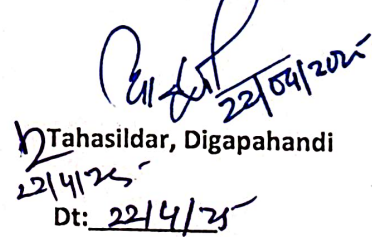 22/04/2025
Tahasildar, Digapahandi
22/4/25
Dt: 22/4/25